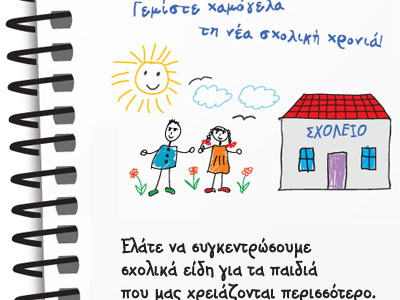 Γεμίστε χαμόγελα
τη νέα σχολική χρονιά!
ΣΧΟΛΕΙΟ
Ελάτε να συγκεντρώσουμε
σχολικά είδη για τα παιδιά
που μας χρειάζονται περισσότερο.